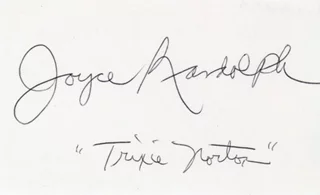 Joyce Randolph
"Trixie Norton"